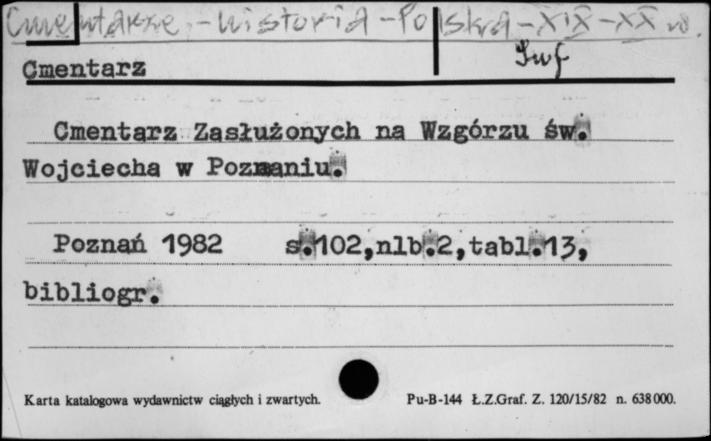 Cmentarze - historia - Polska - XIX - XX w.
Inf
Cmentarz
Cmentarz Zasłużonych na Wzgórzu św.
Wojciecha w Poznaniu.
Poznań 1982 s.102,nlb.2,tabl.13,
bibliogr.
Karta katalogowa wydawnictw ciągłych i zwartych. Pu-B-144 Ł.Z.Graf. Z. 120/15/82 n. 638000.